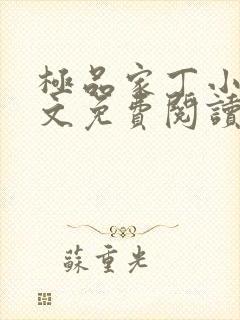 極品家丁小
文免費閱讀
蘇重光